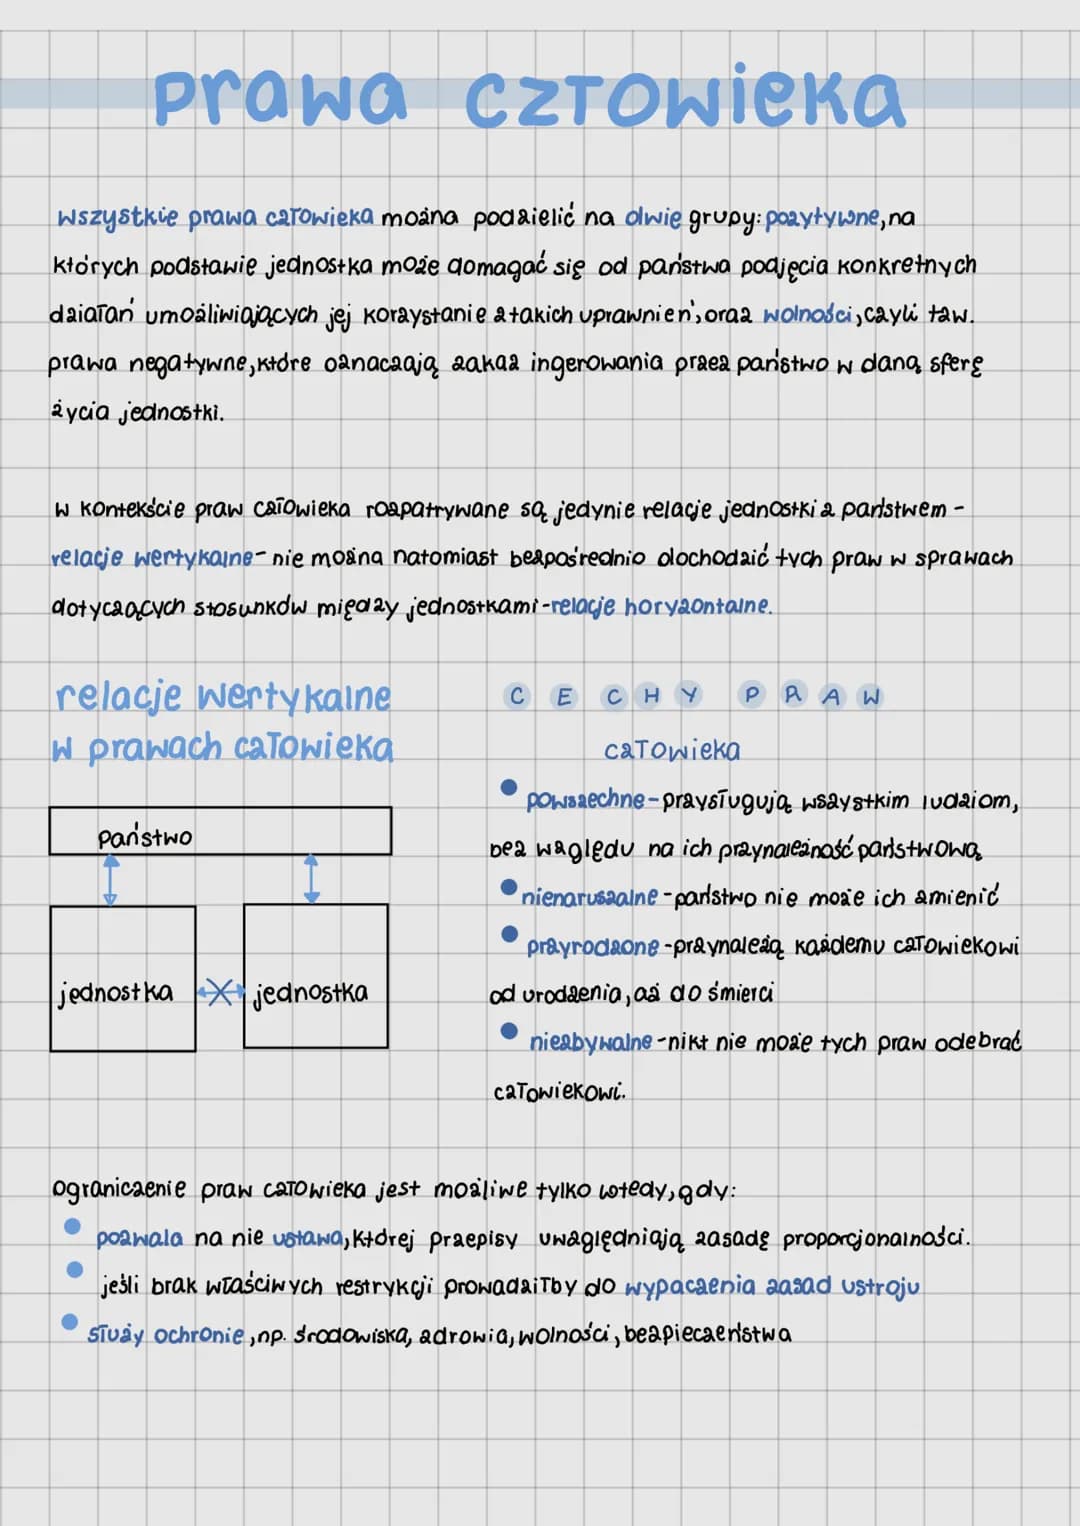 prawa człowieka
wszystkie prawa człowieka można podzielić na dwie grupy: pozytywne, na
których podstawie jednostka może domagać się od państwa podjęcia konkretnych
działań umożliwiających jej korzystanie z takich uprawnień, oraz wolności, czyli tzw.
prawa negatywne, które oznaczają zakaz ingerowania przez państwo w daną sferę
życia jednostki.
w kontekście praw człowieka rozpatrywane są jedynie relacje jednostki z państwem -
relacje wertykalne - nie można natomiast bezpośrednio dochodzić tych praw w sprawach
dotyczących stosunków między jednostkami - relacje horyzontalne.
relacje wertykalne
w prawach człowieka
państwo
jednostka
jednostka
CECHY PRAW
człowieka
powszechne - przysługują wszystkim ludziom,
bez względu na ich przynależność państwową
nienaruszalne - państwo nie może ich zmienić
przyrodzone - przynależą każdemu człowiekowi
od urodzenia, aż do śmierci
niezbywalne - nikt nie może tych praw odebrać
człowiekowi.
ograniczenie praw człowieka jest możliwe tylko wtedy, gdy:
pozwala na nie ustawa, której przepisy uwzględniają zasadę proporcjonalności.
jeśli brak właściwych restrykcji prowadziłby do wypaczenia zasad ustroju
służy ochronie, np. środowiska, zdrowia, wolności, bezpieczeństwa